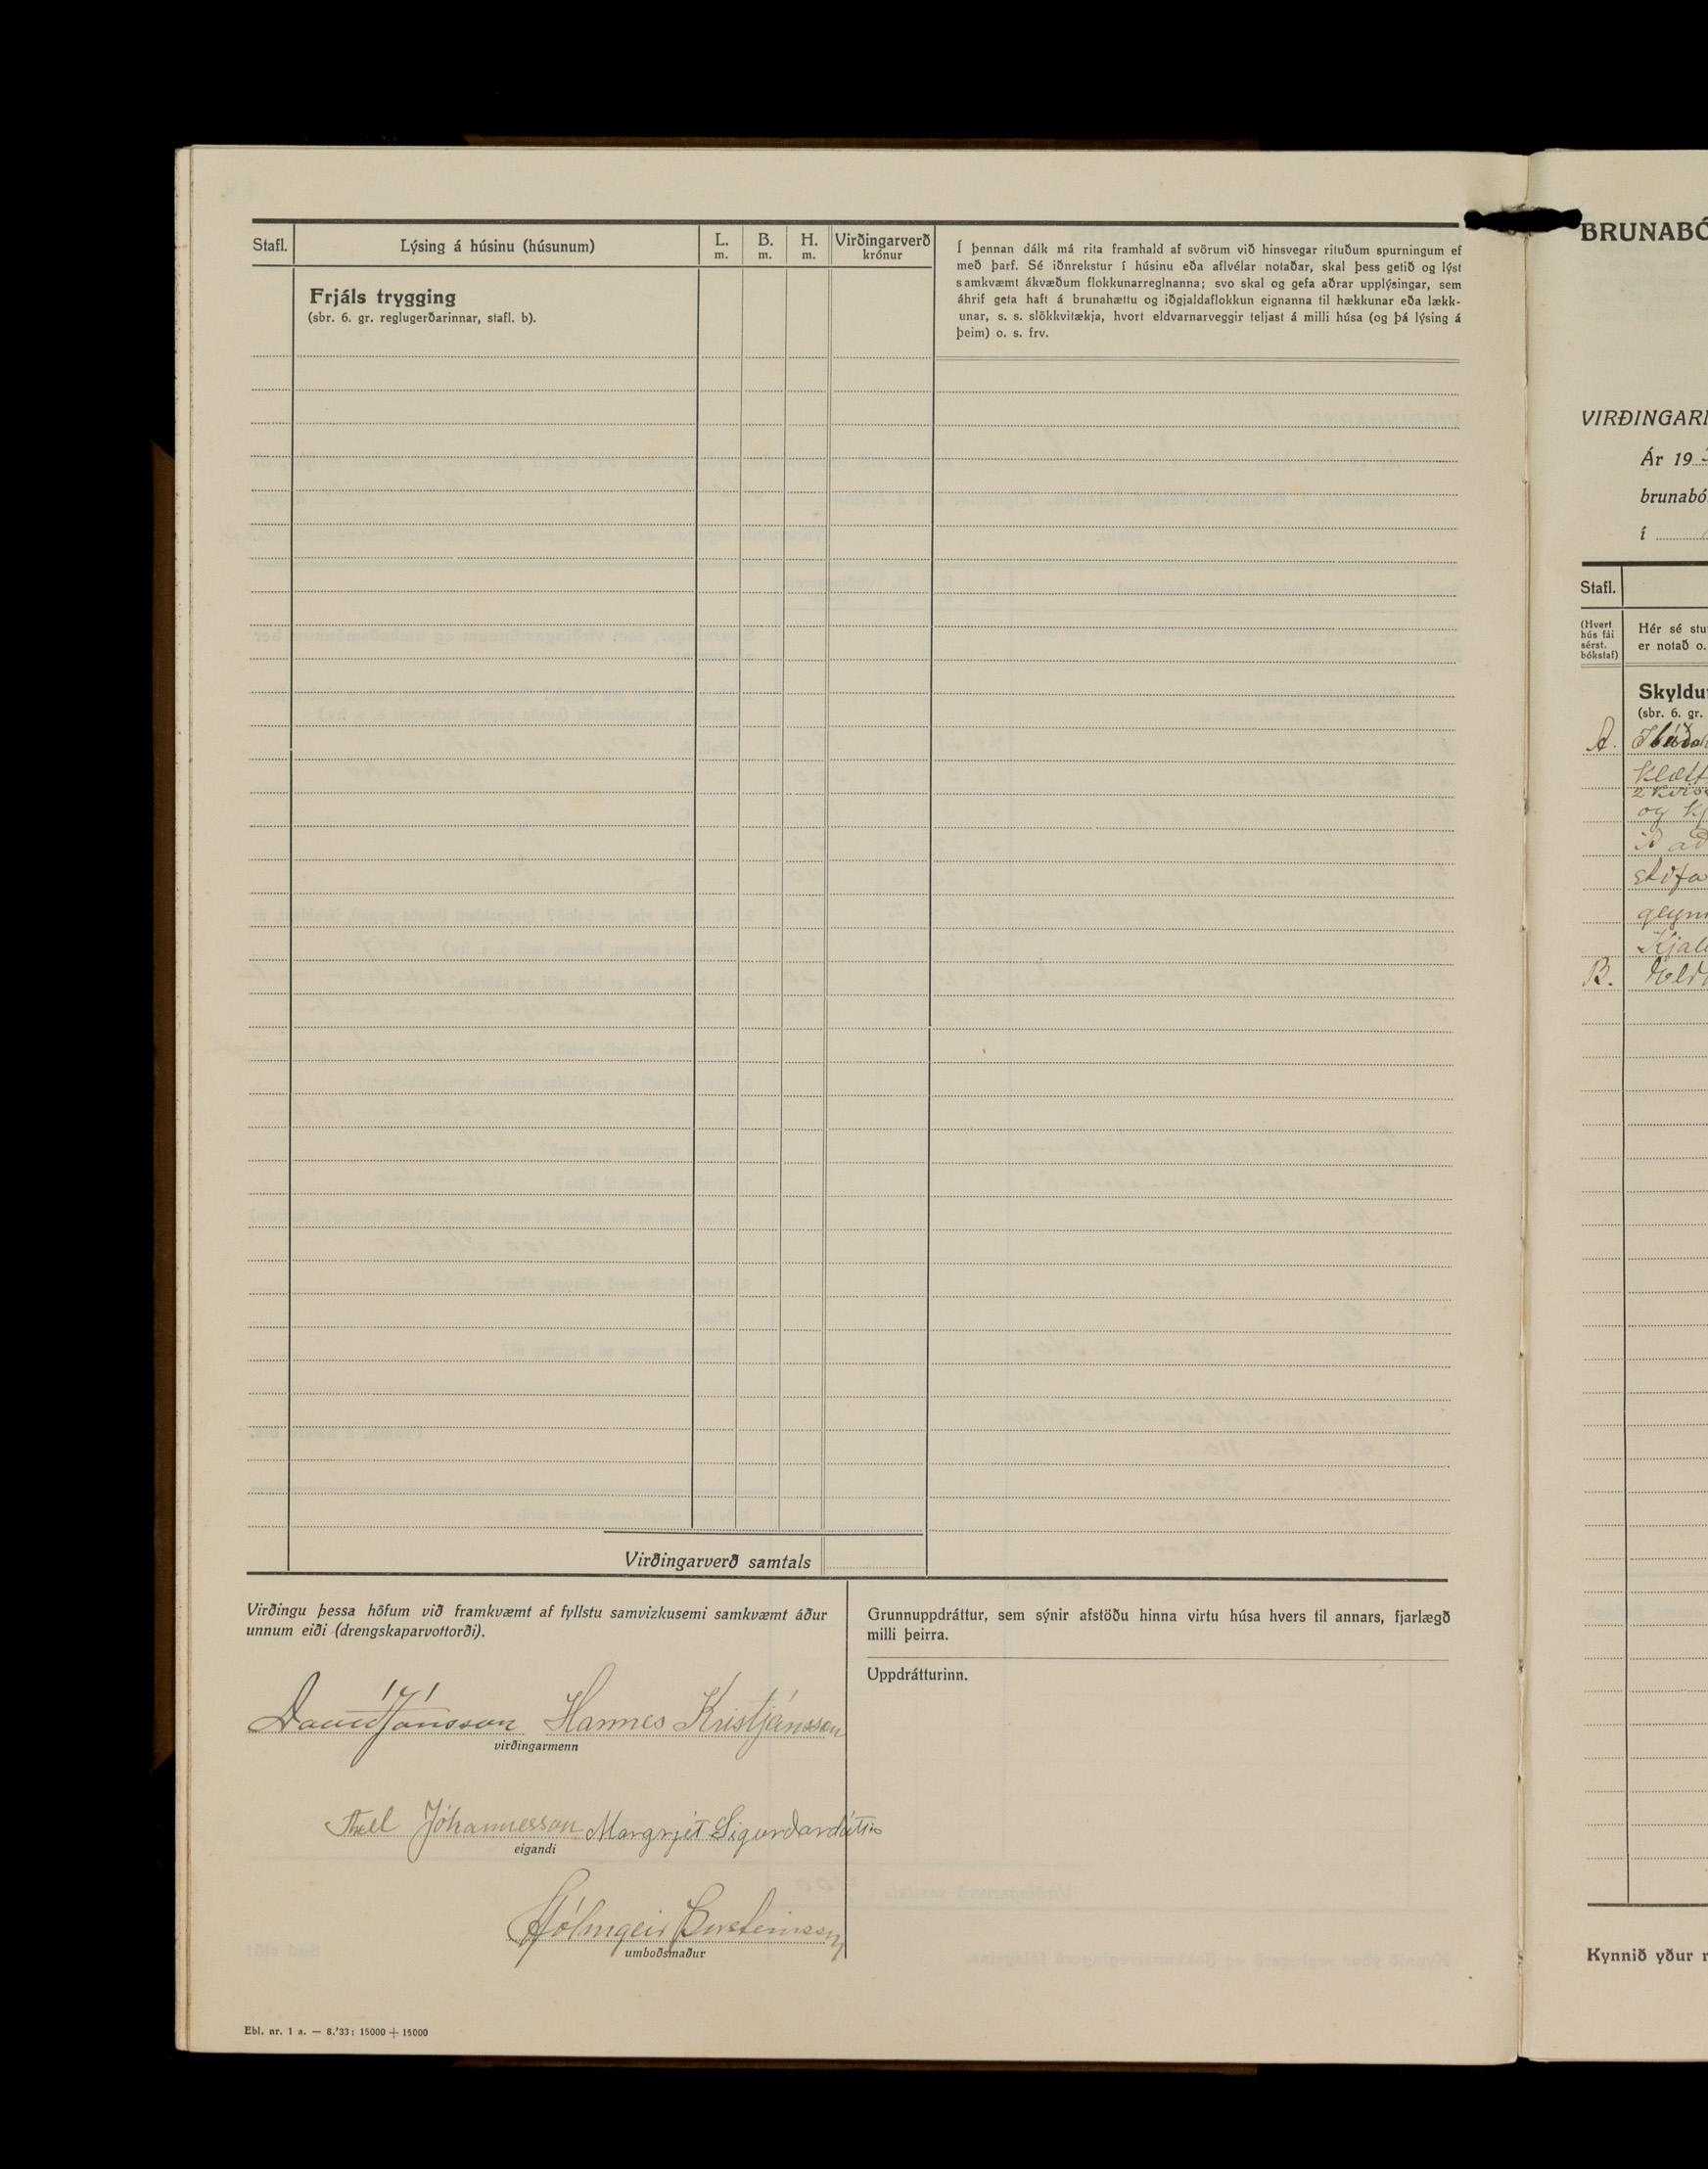 Stafl.
Lýsing á húsinu (húsunum)
L.
m.
B.
m.
H.
m.
Virðingarverð
krónur
Frjáls trygging
(sbr. 6. gr. reglugerðarinnar, stafl. b).
Í þennan dálk má rita framhald af svörum við hinsvegar rituðum spurningum ef
með þarf. Sé iðnrekstur í húsinu eða aflvélar notaðar, skal þess getið og lýst
samkvæmt ákvæðum flokkunarreglnanna; svo skal og gefa aðrar upplýsingar, sem
áhrif geta haft á brunahættu og iðgjaldaflokkun eignanna til hækkunar eða lækk-
unar, s. s. slökkvitækja, hvort eldvarnarveggir teljast á milli húsa (og þá lýsing á
þeim) o. s. frv.
Virðingarverð samtals
Virðingu þessa höfum við framkvæmt af fyllstu samvizkusemi samkvæmt áður
unnum eiði (drengskaparvottorði).
Davíð Jónsson Hannes Kristjánsson
virðingarmenn
Jóhannesson Margrjét Sigurðardóttir
eigandi
Hólmgeir Þorsteinsson
umboðsmaður
Grunnuppdráttur, sem sýnir afstöðu hinna virtu húsa hvers til annars, fjarlægð
milli þeirra.
Uppdrátturinn.
Ebl. nr. 1 a. — 8.'33: 15000 + 15000
BRUNABÓ
VIRÐINGAR
Ár 19
brunabó
í
Stafl.
(Hvert
hús fái
sérst.
bókstaf)
Hér sé stu
er notað o.
Skyldu
(sbr. 6. gr.
A. Íbúða
klætt
2 kvis
og kj
stífa
geym
Kjall
B.
Kynnið yður r